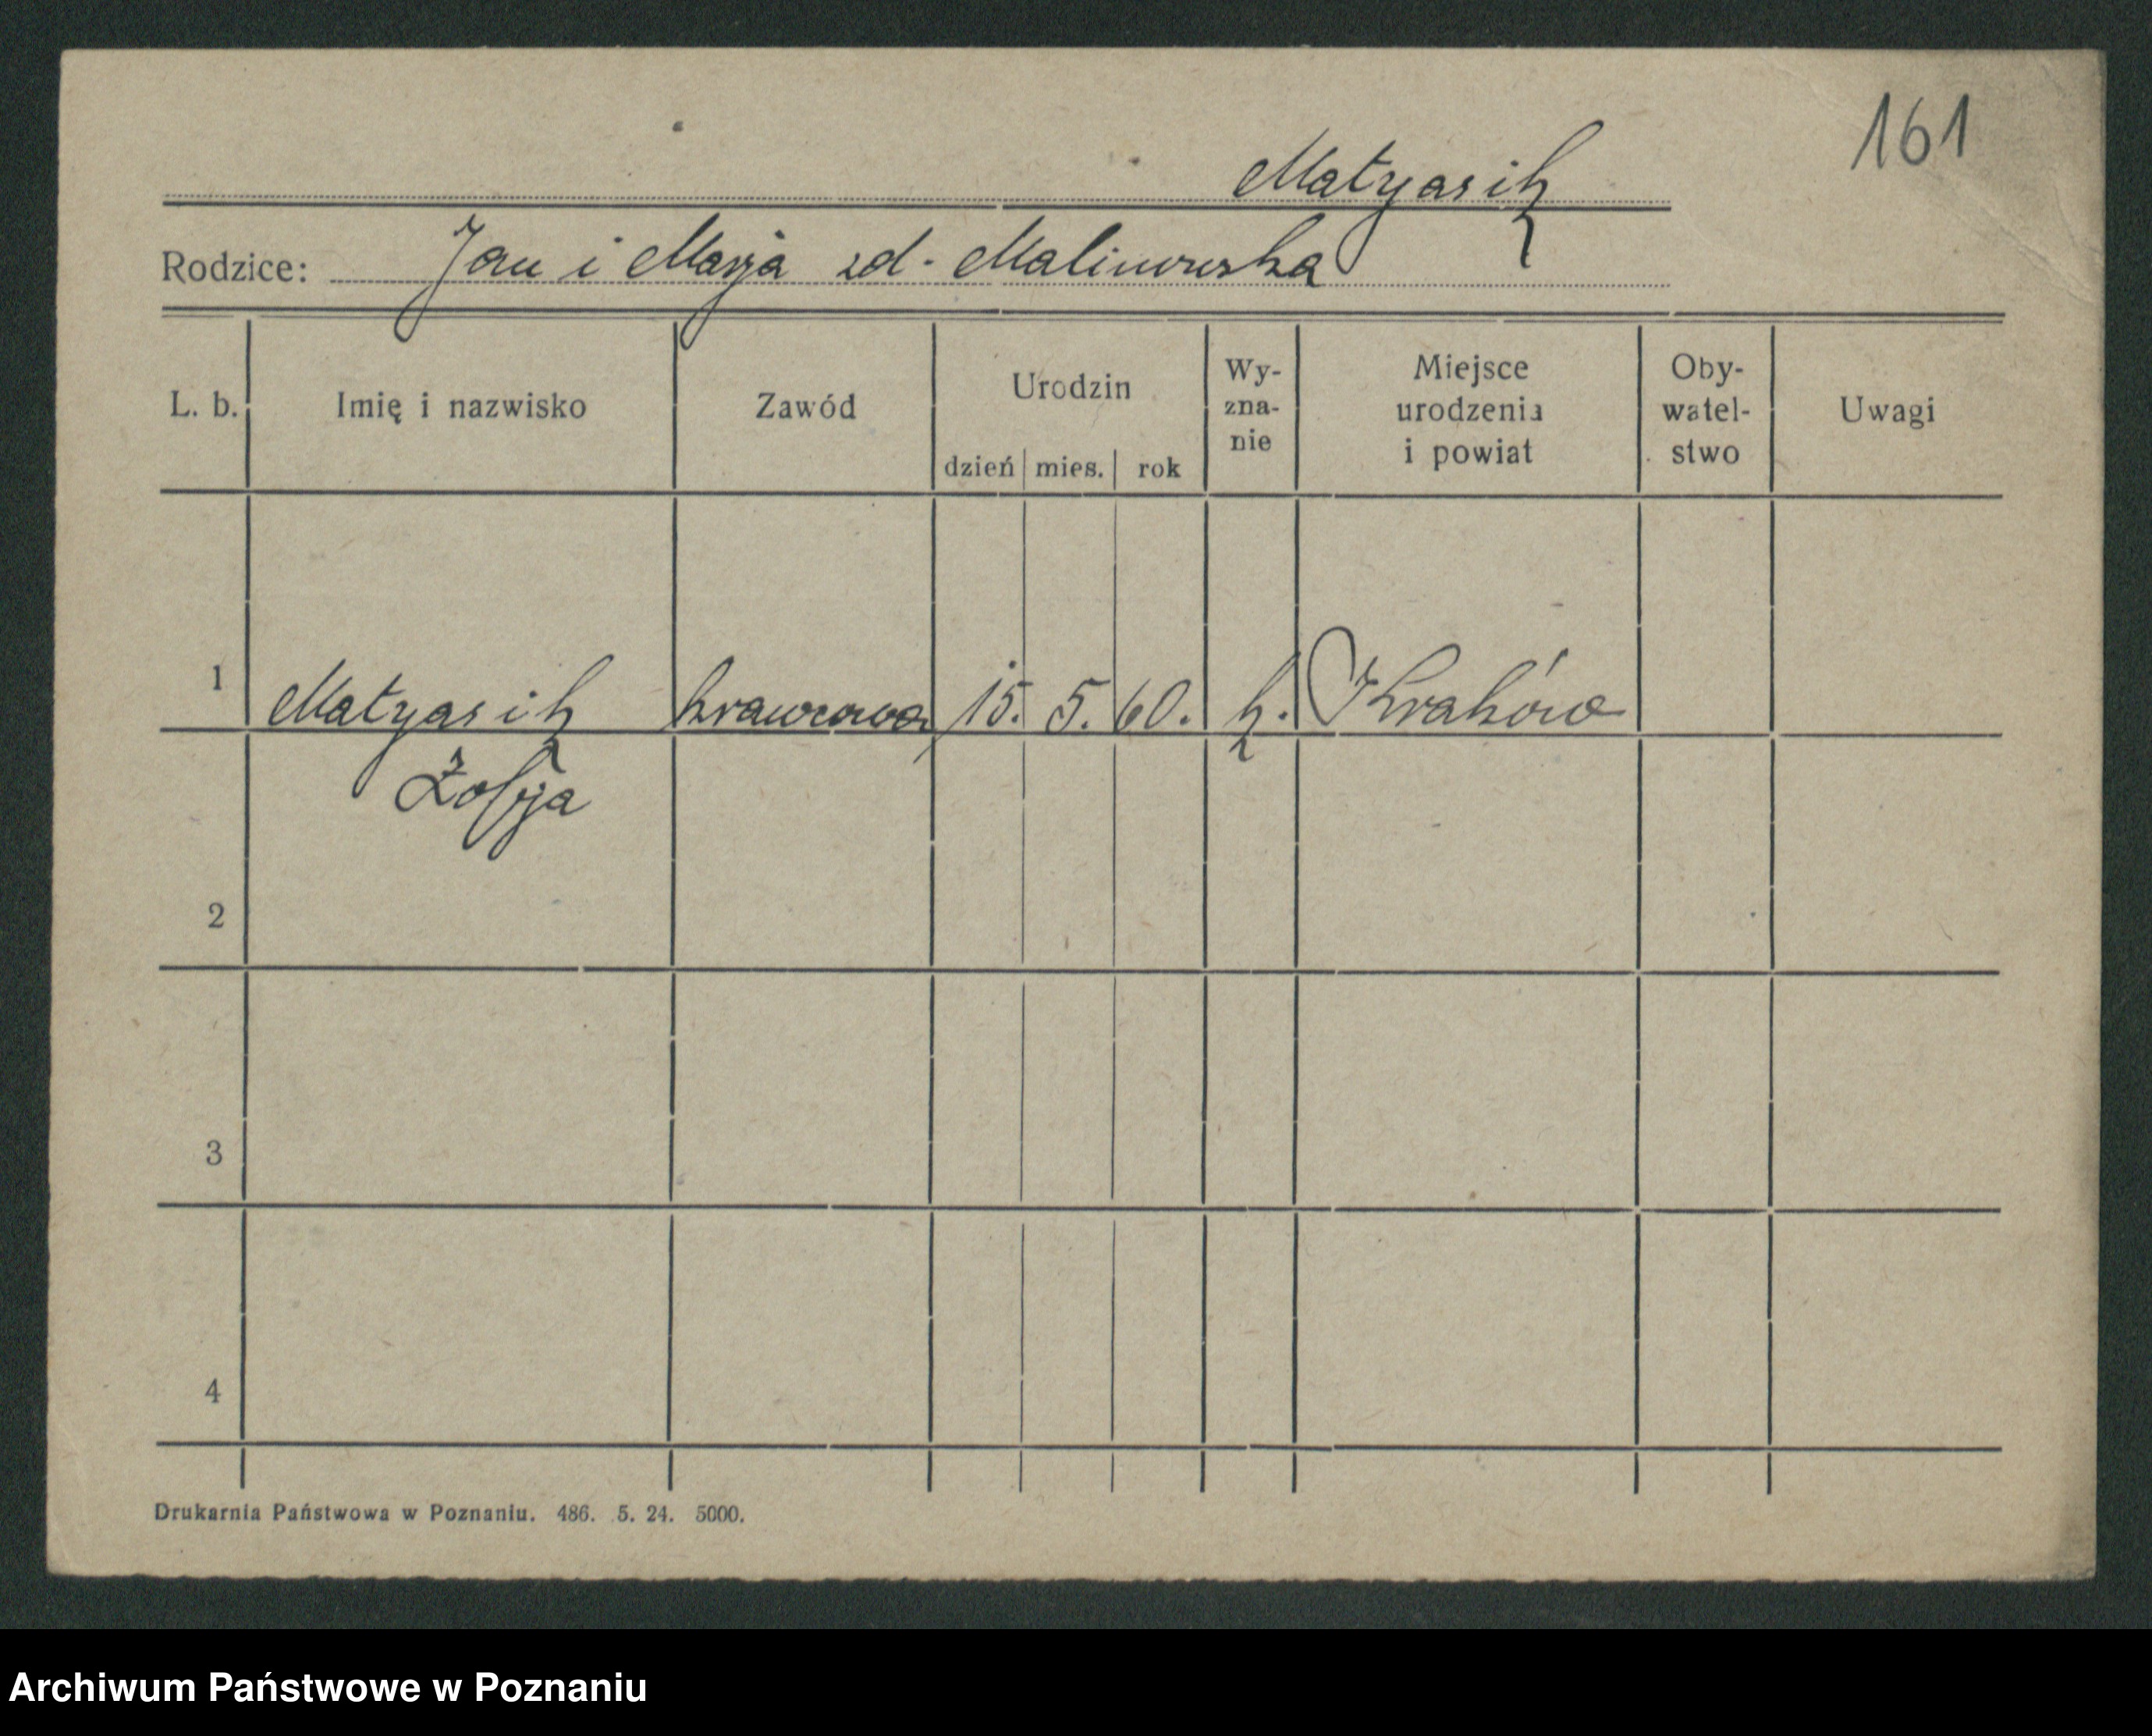 161
Matyasik
Rodzice: Jan i Marja zd. Malinowska
L. b. Imię i nazwisko Zawód Urodzin dzień mies. rok Wy-zna-nie Miejsce urodzenia i powiat Oby-watel-stwo Uwagi
1 Matyasik krawcowa 15. 5. 60. k. Kraków
Żofja
2
3
4
Drukarnia Państwowa w Poznaniu. 486. 5. 24. 5000.
Archiwum Państwowe w Poznaniu